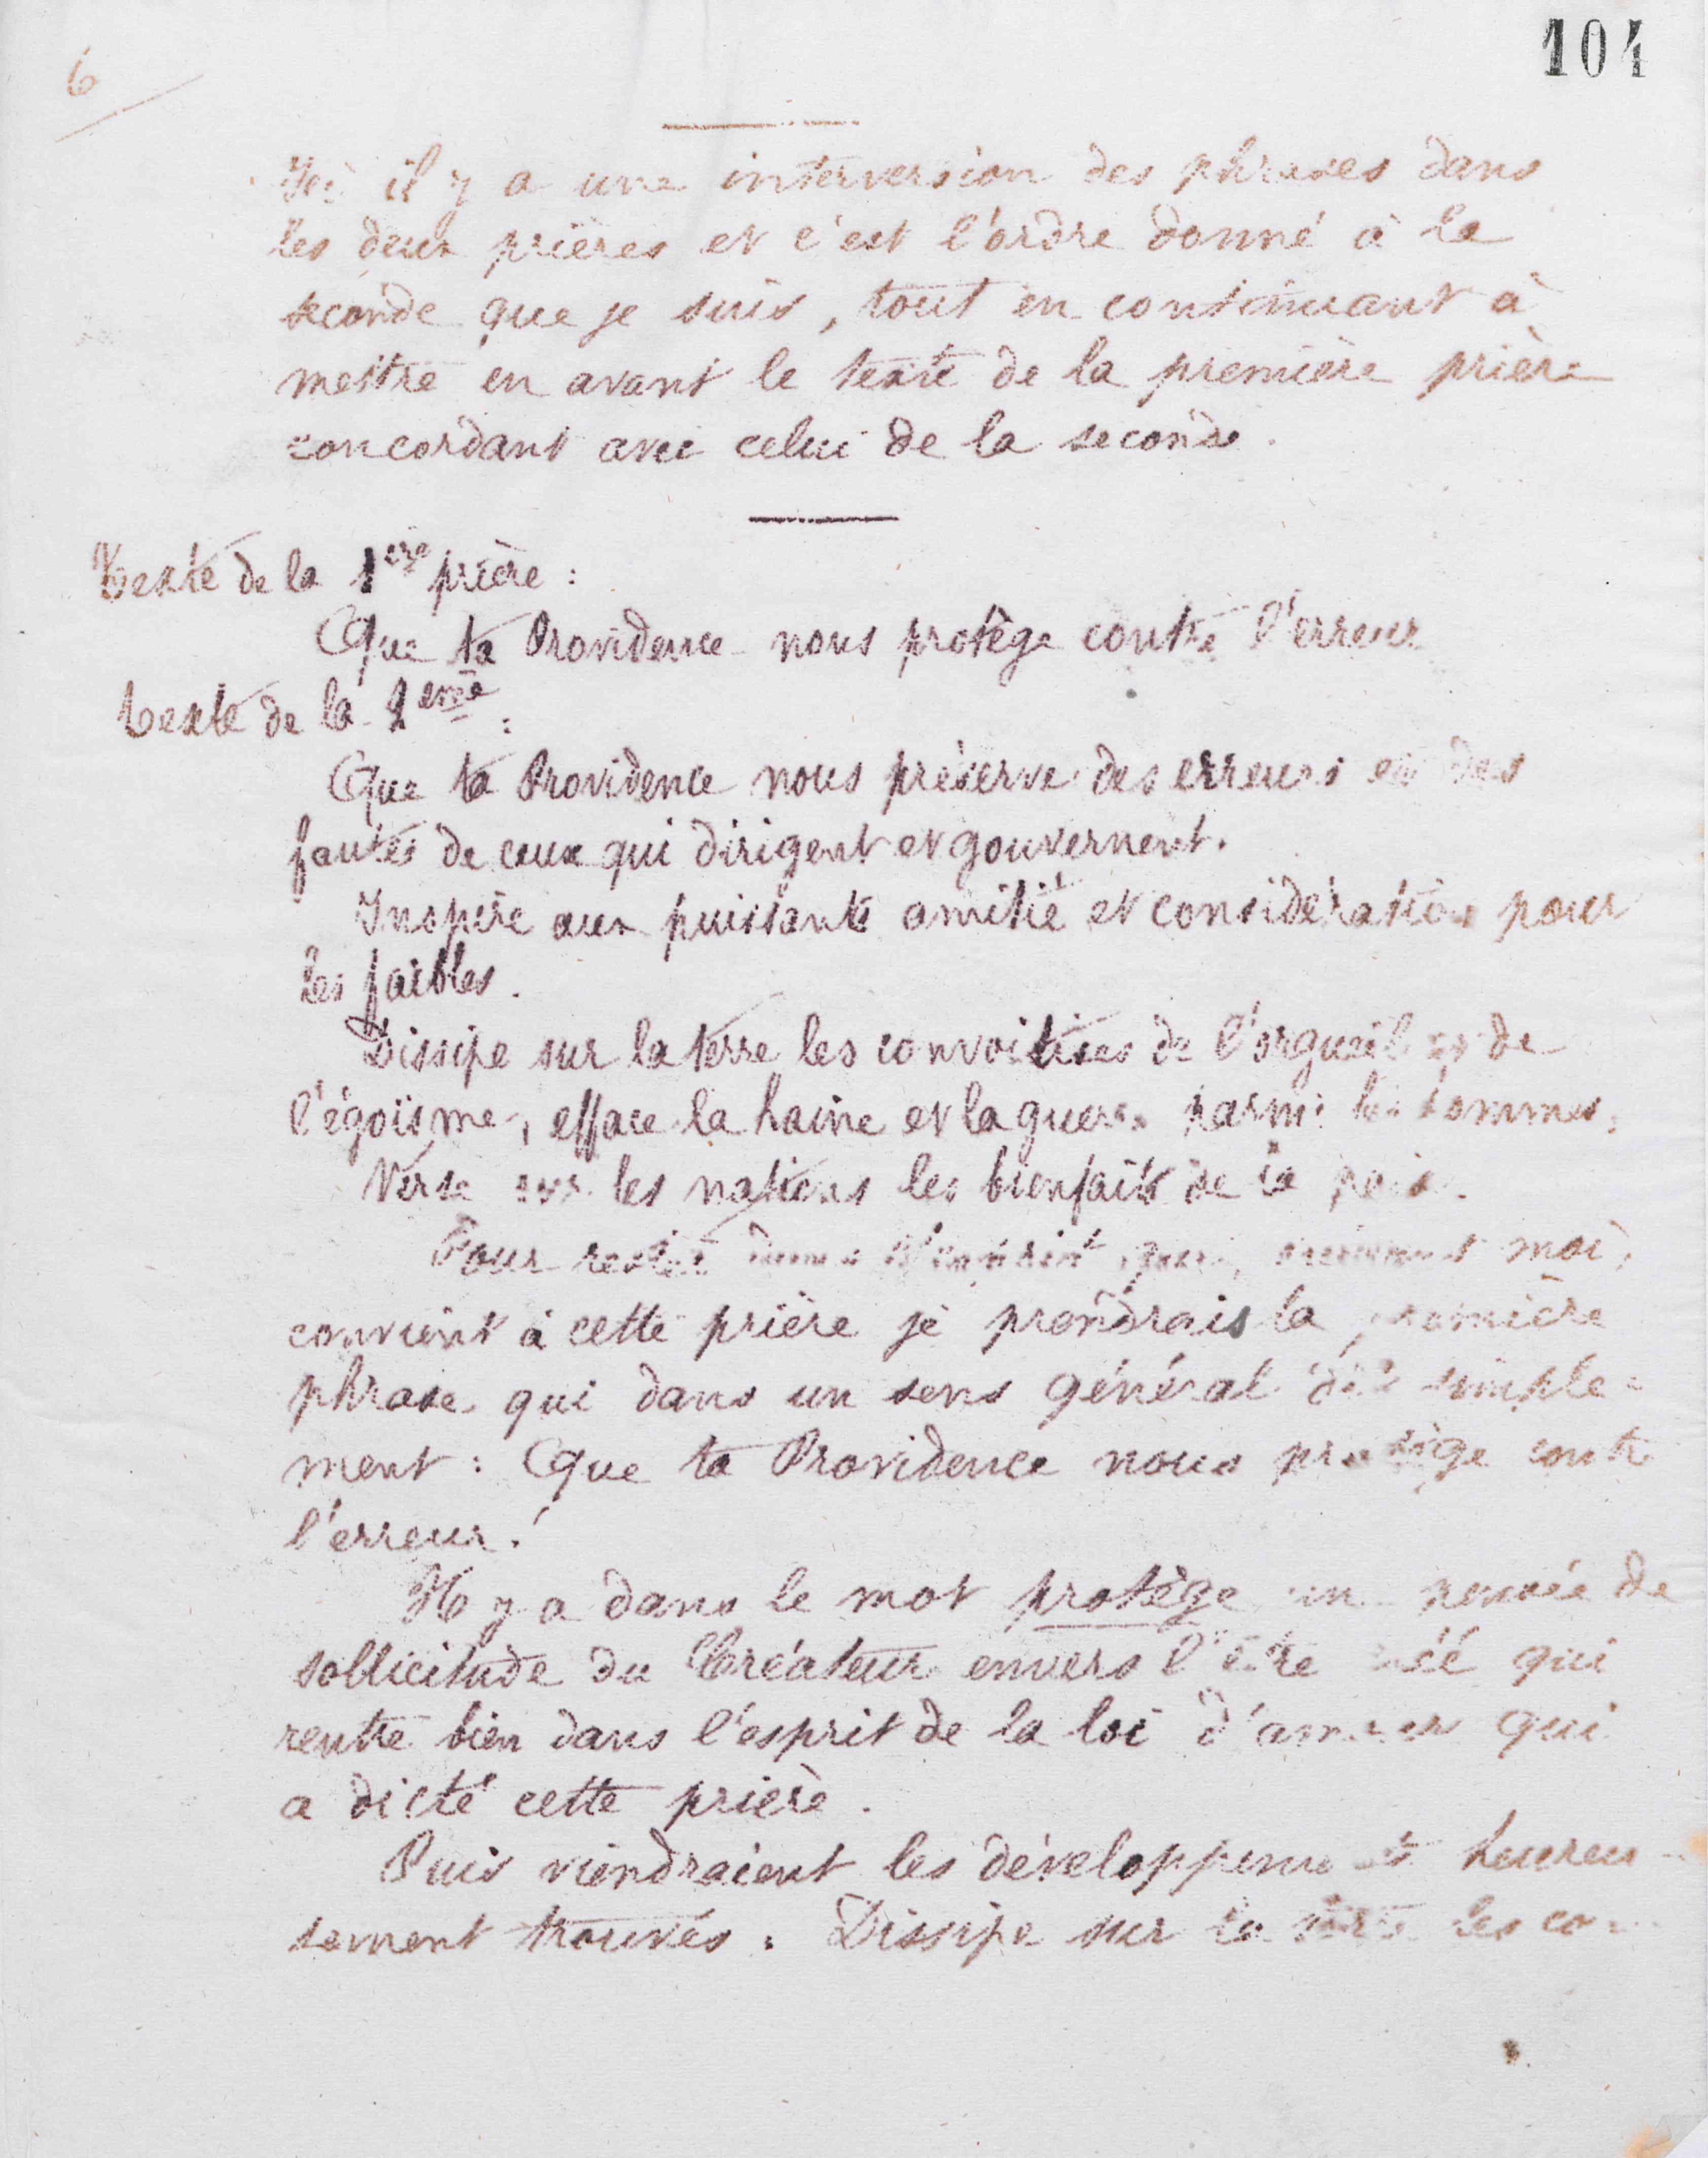 104
6
Ici il y a une interversion des phrases dans
les deux prières et c'est l'ordre donné à la
seconde que je suis, tout en continuant à
mettre en avant le texte de la première prière
concordant avec celui de la seconde.
Texte de la 1ère prière :
Que ta Providence nous protège contre l'erreur
texte de la 2ème :
Que ta Providence nous préserve des erreurs et des
fautes de ceux qui dirigent et gouvernent.
Inspire aux puissants amitié et considération pour
les faibles.
Dissipe sur la terre les convoitises de l'orgueil et de
l'égoïsme, efface la haine et la guerre parmi les hommes.
Verse sur les nations les bienfaits de la paix.
Pour rester dans l'esprit qui, suivant moi,
convient à cette prière je prendrais la première
phrase qui dans un sens général dit simple=
ment : Que ta Providence nous protège contre
l'erreur !
Il y a dans le mot protège un pensée de
sollicitude du Créateur envers l'être créé qui
rentre bien dans l'esprit de la loi d'amour qui
a dicté cette prière.
Puis viendraient les développements heureu-
sement trouvés : Dissipe sur la terre les con-